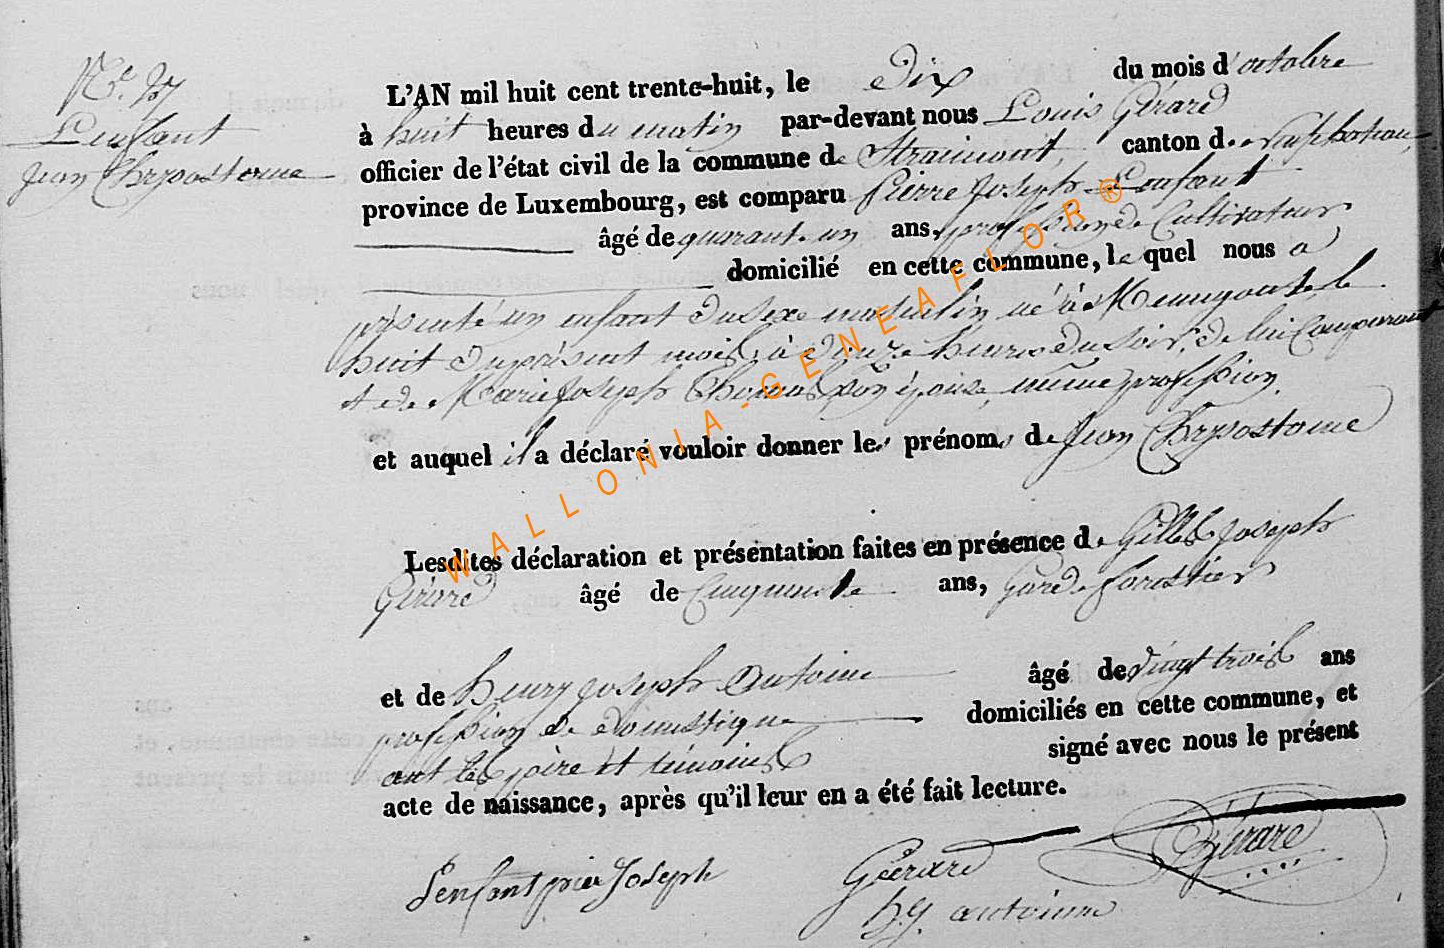 N.º 37
Lenfant
Jean Chrysostome
L'AN mil huit cent trente-huit, le dix du mois d'octobre
à huit heures du matin par-devant nous Louis Gérard
officier de l'état civil de la commune de Straimont, canton de Neufchateau,
province de Luxembourg, est comparu Pierre Joseph Lenfant
âgé de quarante un ans, profession de Cultivateur
domicilié en cette commune, le quel nous a
présenté un enfant du sexe masculin né à Menugoutte, le
huit du présent mois, à onze heures du soir, de lui Comparant
et de Marie Joseph Thomas son épouse, même profession.
et auquel il a déclaré vouloir donner les prénoms de Jean Chrysostome
Lesdites déclaration et présentation faites en présence de Gilles Joseph
Gérard âgé de Cinquante ans, Garde forestier
et de henry joseph Antoine âgé de vingt trois ans
profession de domestique domiciliés en cette commune, et
ont les père et témoins signé avec nous le présent
acte de naissance, après qu'il leur en a été fait lecture.
Lenfant pier Joseph
Gérard
Gérard
h.j. antoine
WALLONIA-GENEAFLOR®